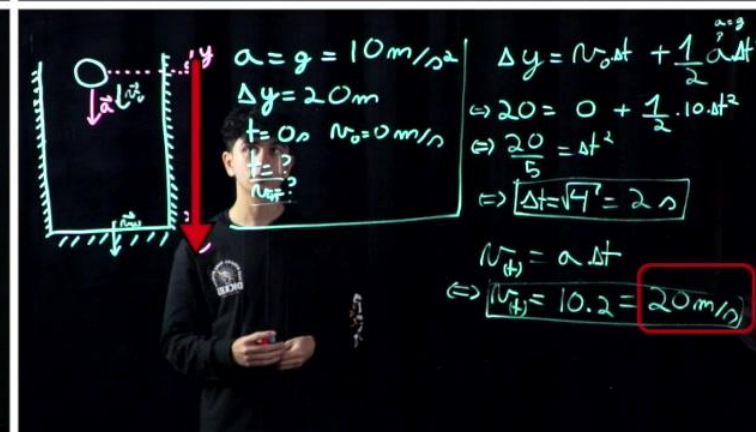 y
a = g = 10 m/s²
Δy = 20 m
t = 0s v₀ = 0 m/s
t = ?
v₍t₎ = ?
a⃗ v⃗₀
a = g
?
Δy = v₀.Δt + 1/2 a.Δt²
⇔ 20 = 0 + 1/2 .10.Δt²
⇔ 20/5 = Δt²
⇔ Δt = √4 = 2 s
v₍t₎ = a.Δt
⇔ v₍t₎ = 10.2 = 20 m/s